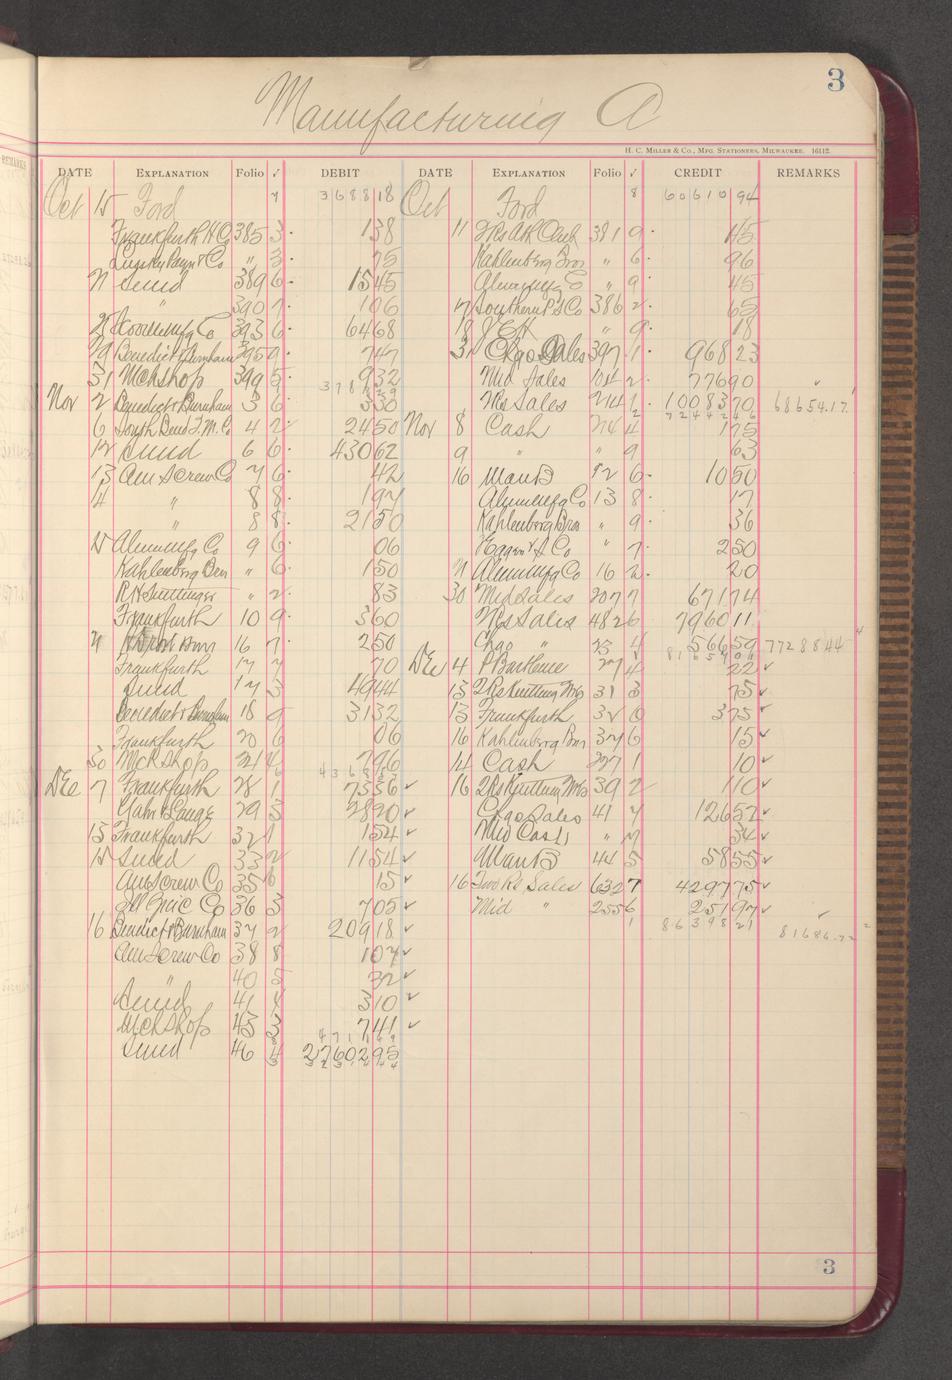 3
Manufacturing A
H. C. Miller & Co., Mfg. Stationers, Milwaukee. 16112.
REMARKS
DATE EXPLANATION Folio √ DEBIT DATE EXPLANATION Folio √ CREDIT REMARKS
Oct 15 Ford 7 3688 18 Oct Ford 8 60610 94
Frankfurth H Co 385 3 1 38 11 2 Rs Ath Club 381 9 1 45
" 3 75 Kahlenberg Bros " 6 96
21 Sund 389 6 15 45 Alummfg Co " 9 45
" 390 7 1 06 17 Southern P S Co 386 2 65
393 6 64 68 18 " 9 18
29 Benedict & Burnham 395 9 7 47 31 Chgo Sales 397 1 968 23
31 Mch Shop 399 5 9 32 Mid Sales 104 2 776 90
Nov 2 Benedict & Burnham 3 6 3 30 2 Rs Sales 241 1 10083 70 68654.17
6 South Bend T. M. Co 4 2 24 50 Nov 8 Cash 24 4 1 75
12 Sund 6 6 430 62 9 " " 9 63
13 Am Screw Co 7 6 42 16 Mant B 12 6 10 50
14 " 8 8 1 97 Alummfg Co 13 8 17
" 8 8 21 50 Kahlenberg Bros " 9 36
15 Alummfg Co 9 6 06 " 7 2 50
Kahlenberg Bros " 6 1 50 21 Alummfg Co 16 2 20
" 2 83 30 Mid Sales 207 7 671 74
Frankfurth 10 9 3 60 2 Rs Sales 482 6 7960 11
21 16 7 2 50 Chgo " 23 4 566 59 77288 44
Frankfurth 17 7 70 DEc 4 27 4 22 √
Sund 17 3 49 44 13 2 Rs Knitting Wks 31 3 75 √
Benedict & Burnham 18 9 31 32 13 Frankfurth 32 0 3 75 √
Frankfurth 20 6 06 16 Kahlenberg Bros 37 6 15 √
30 Mch Shop 21 4 7 96 14 Cash 27 1 10 √
DEc 7 Frankfurth 28 1 73 36 √ 16 2 Rs Knitting Wks 39 2 1 10 √
Yahr & Lange 29 3 28 20 √ Chgo Sales 41 7 126 52 √
13 Frankfurth 32 1 1 54 √ Mid Cash " 7 34 √
15 Sund 33 2 11 54 √ Mant B 44 5 58 55 √
Am Screw Co 35 6 15 √ 16 Two Rs Sales 632 7 4297 75 √
36 3 7 05 √ Mid " 255 6 251 97 √
16 Benedict & Burnham 37 2 209 18 √ 86398 21 81686.72
Am Screw Co 38 8 1 07 √
" 40 5 32 √
Sund 41 4 3 10 √
Mch Shop 43 3 7 41 √
Sund 46 4 27602 95
3